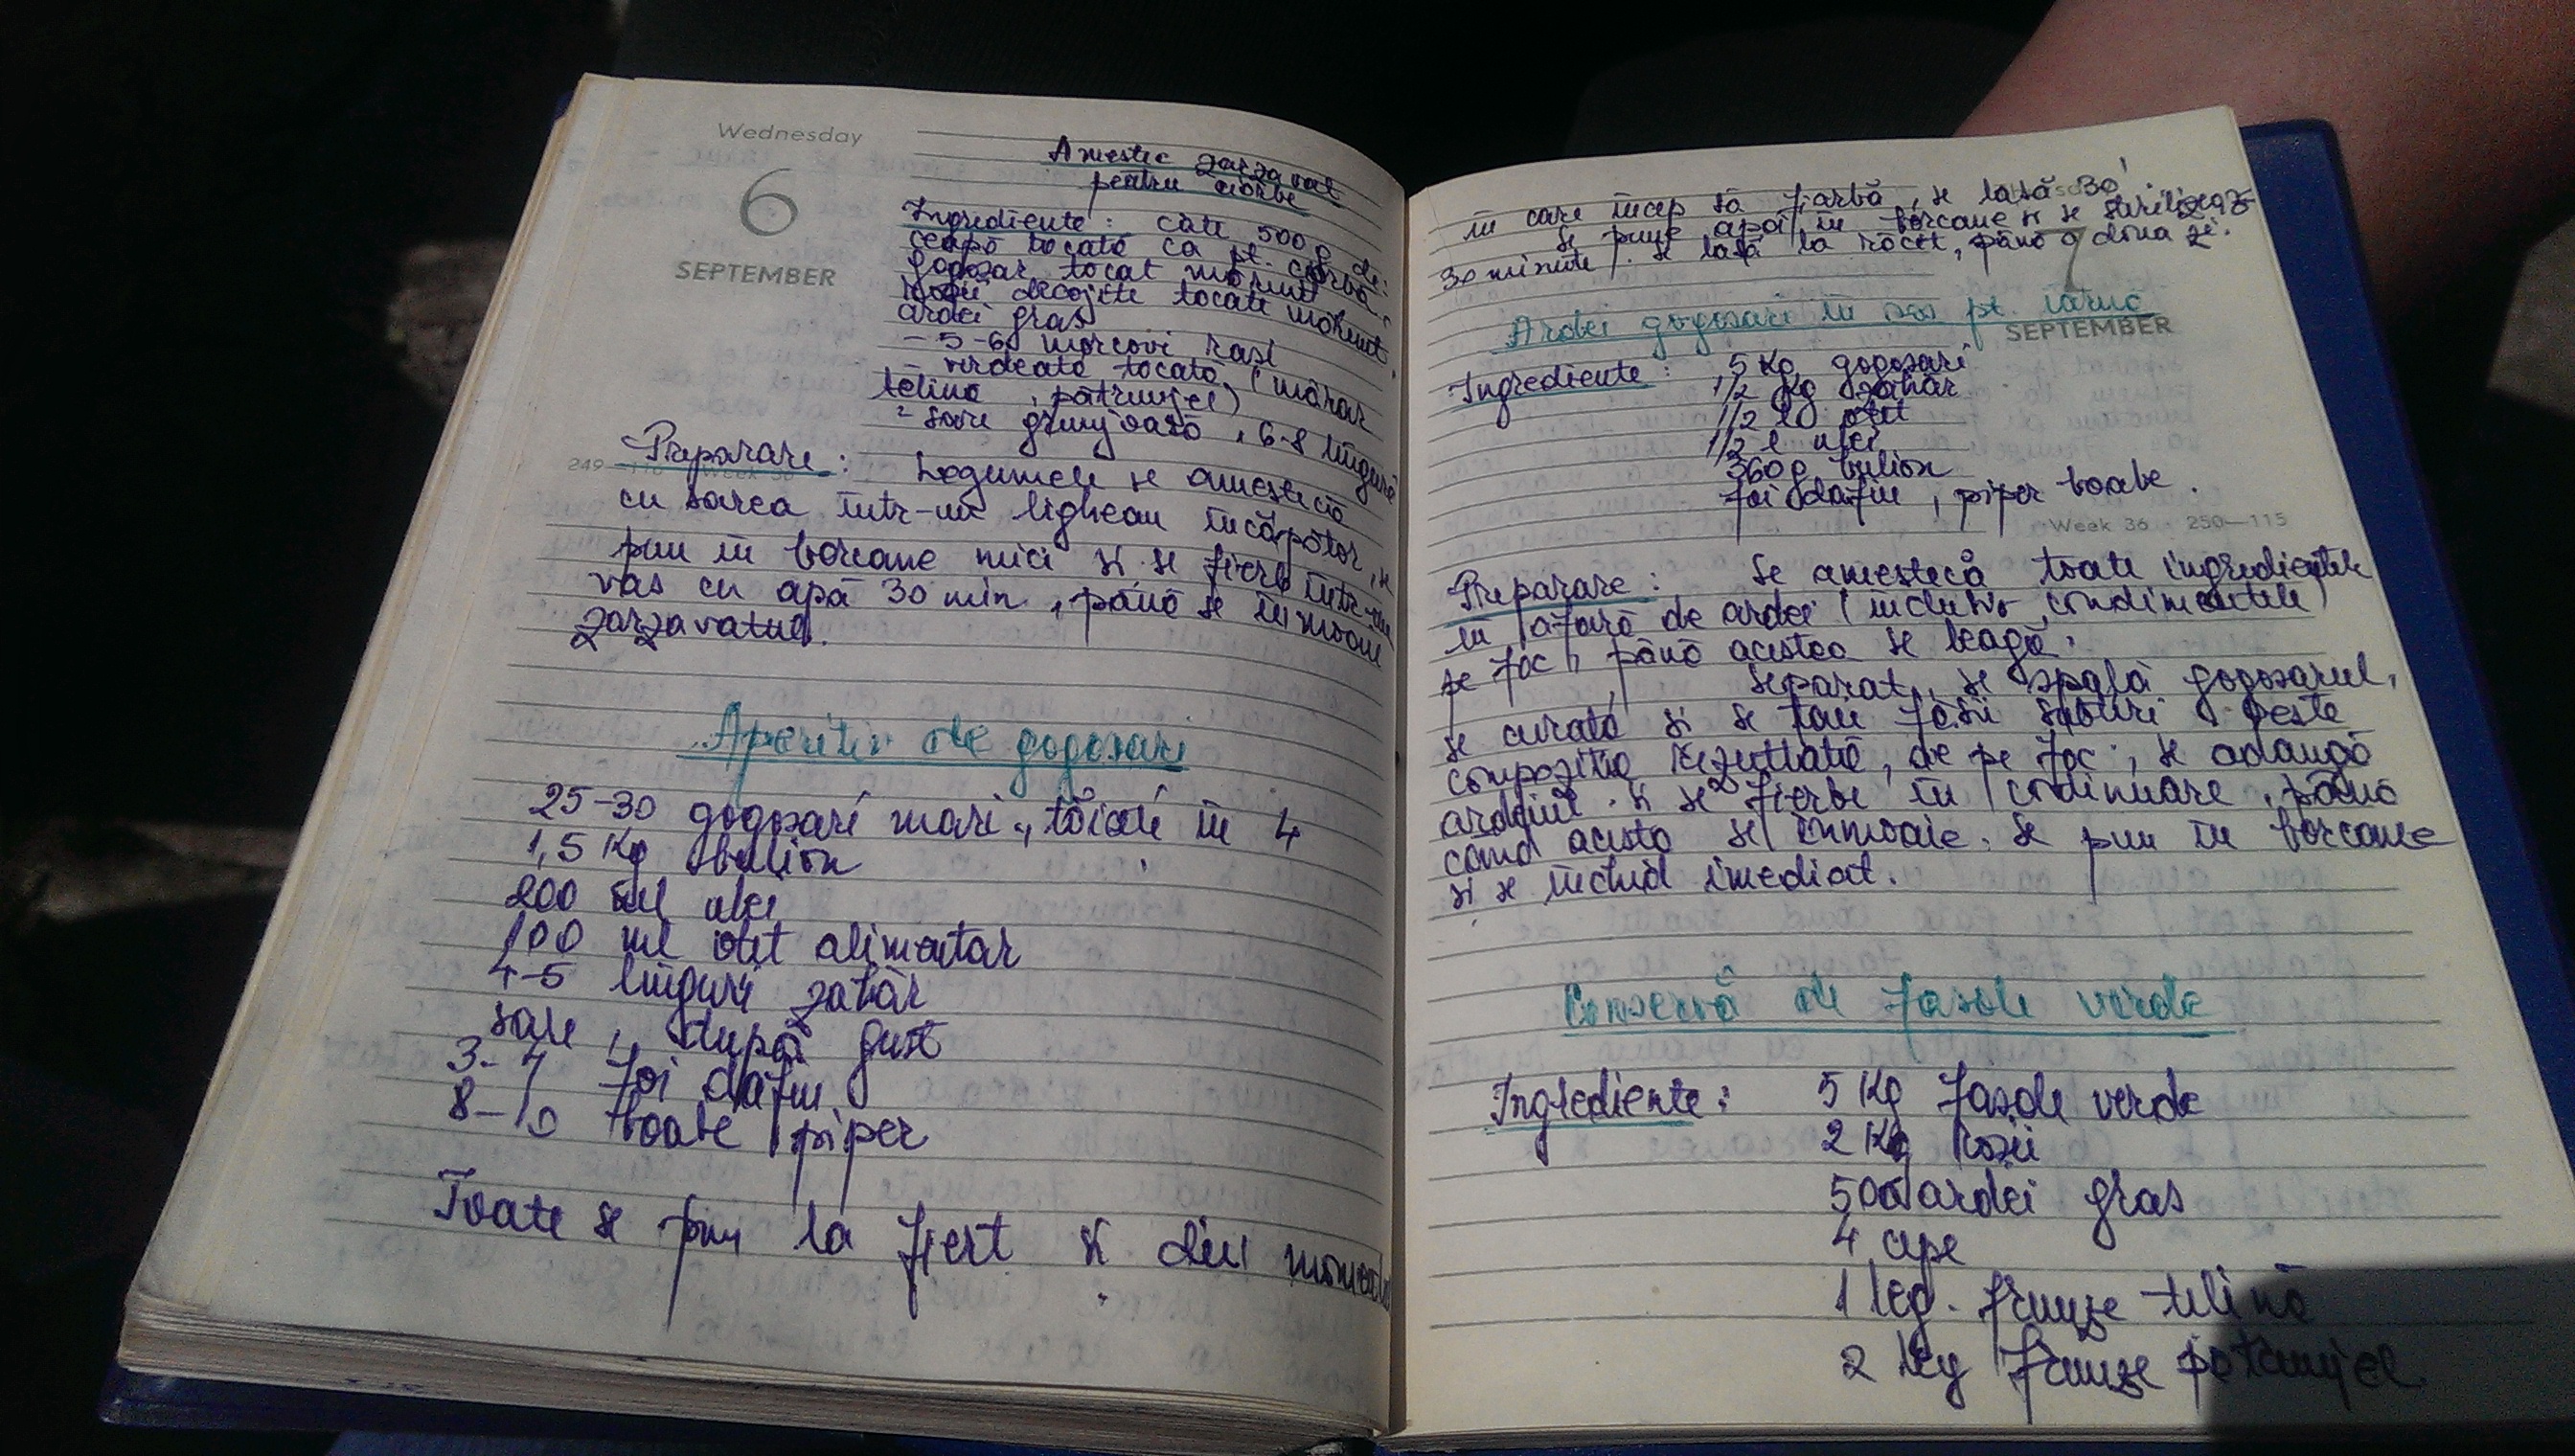 Wednesday
6
SEPTEMBER
Amestec zarzavat
pentru ciorbe
Ingrediente: câte 500 g de:
ceapă tocată ca pt. ciorbă
gogoșar tocat mărunt
roșii decojite tocate mărunt
ardei gras
- 5-6 morcovi rasi
- verdeată tocată, (mărar
telină, pătrunjel)
- sare grunjoasă, 6-8 linguri
249-116 Week 36
Preparare: Legumele se amestecă
cu sarea într-un lighean încăpător, se
pun în borcane mici si se fierb într-un
vas cu apă 30 min, până se înmoaie
zarzavatul.
Aperitiv de gogosari
25-30 gogosari mari, tăiati în 4
1,5 Kg bulion
200 ml ulei
100 ml otet alimentar
4-5 linguri zahăr
sare, după gust
3-4 foi dafin
8-10 boabe piper
Toate se pun la fiert si din momentul
în care încep să fiarbă, se lasă 30'.
Se pune apoi în borcane si se sterilizeaz
30 minute. Se lasă la răcit, până a doua zi.
7
SEPTEMBER
Ardei gogosari în sos pt. iarnă
Ingrediente: 5 Kg gogosari
1/2 Kg zahăr
1/2 l otet
1/2 l ulei
360 g bulion
foi dafin, piper boabe.
Week 36 250-115
Preparare: Se amestecă toate ingredientele
în afară de ardei (inclusiv condimentele)
pe foc, până acestea se leagă.
Separat, se spală gogosarul,
se curată si se taie fâsii subtiri. Peste
compozitia rezultată, de pe foc, se adaugă
ardeiul si se fierbe în continuare, până
când acesta se înmoaie. Se pun în borcane
si se închid imediat.
Conservă de fasole verde
Ingrediente: 5 Kg fasole verde
2 Kg rosii
500 ardei gras
4 cepe
1 leg. frunze telină
2 leg frunze pătrunjel